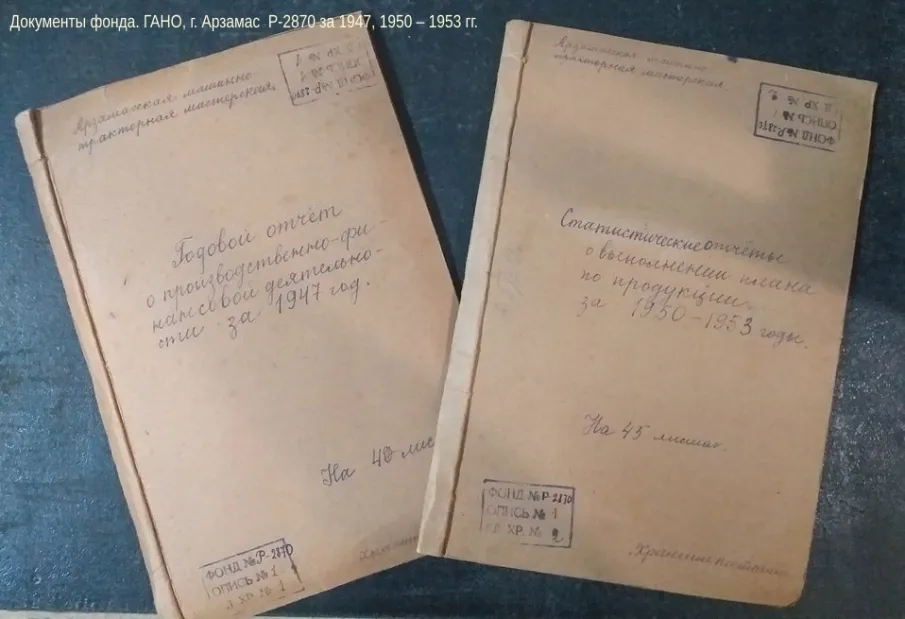 Документы фонда. ГАНО, г. Арзамас Р-2870 за 1947, 1950 – 1953 гг.
Арзамасская машинно
тракторная мастерская
ФОНД № Р-2870
ОПИСЬ № 1
Д. ХР. № 1
Годовой отчёт
о производственно-фи-
нансовой деятельно-
сти за 1947 год.
На 40
ФОНД № Р-2870
ОПИСЬ № 1
Д. ХР. № 1
Арзамасская машинно
тракторная мастерская
ФОНД № Р-2870
ОПИСЬ № 1
Д. ХР. № 2
Статистические отчёты
о выполнении плана
по продукции
за 1950-1953 годы.
На 45 листах.
ФОНД № Р-2870
ОПИСЬ № 1
ЕД. ХР. № 2
Хранение постоянно